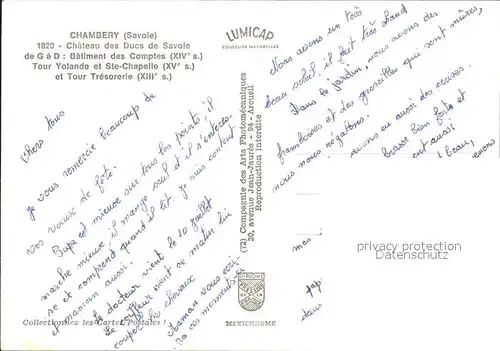 CHAMBERY (Savoie)
1820 - Château des Ducs de Savoie
de G à D : Bâtiment des Comptes (XIVe s.)
Tour Yolande et Ste-Chapelle (XVe s.)
et Tour Trésorerie (XIIIe s.)
LUMICAP
COULEURS NATURELLES
Chers tous
je vous remercie beaucoup de
vos vœux de fête.
Papa est mieux sur tous les points, il
marche mieux, il mange seul et il s'intéres-
se et comprend quand il lit. Je suis content
et maman aussi.
Le docteur vient le 10 juillet
Le coiffeur vient ce matin lui
couper les cheveux
maman vous écri-
ra ces moments-ci
(72) Compagnie des Arts Photomécaniques
30, avenue Jean-Jaurès - 94 - Arcueil
Reproduction interdite
MEXICHROME
Nous avons un très
beau soleil, il fait très chaud
Dans le jardin, nous avons des
framboises et des groseilles qui sont mûres,
nous nous régalons.
avons eu aussi des cerises.
bien forts et
ont aussi
l'eau,
mes
pap
dans
privacy protection
Datenschutz
Collectionnez les Cartes Postales !